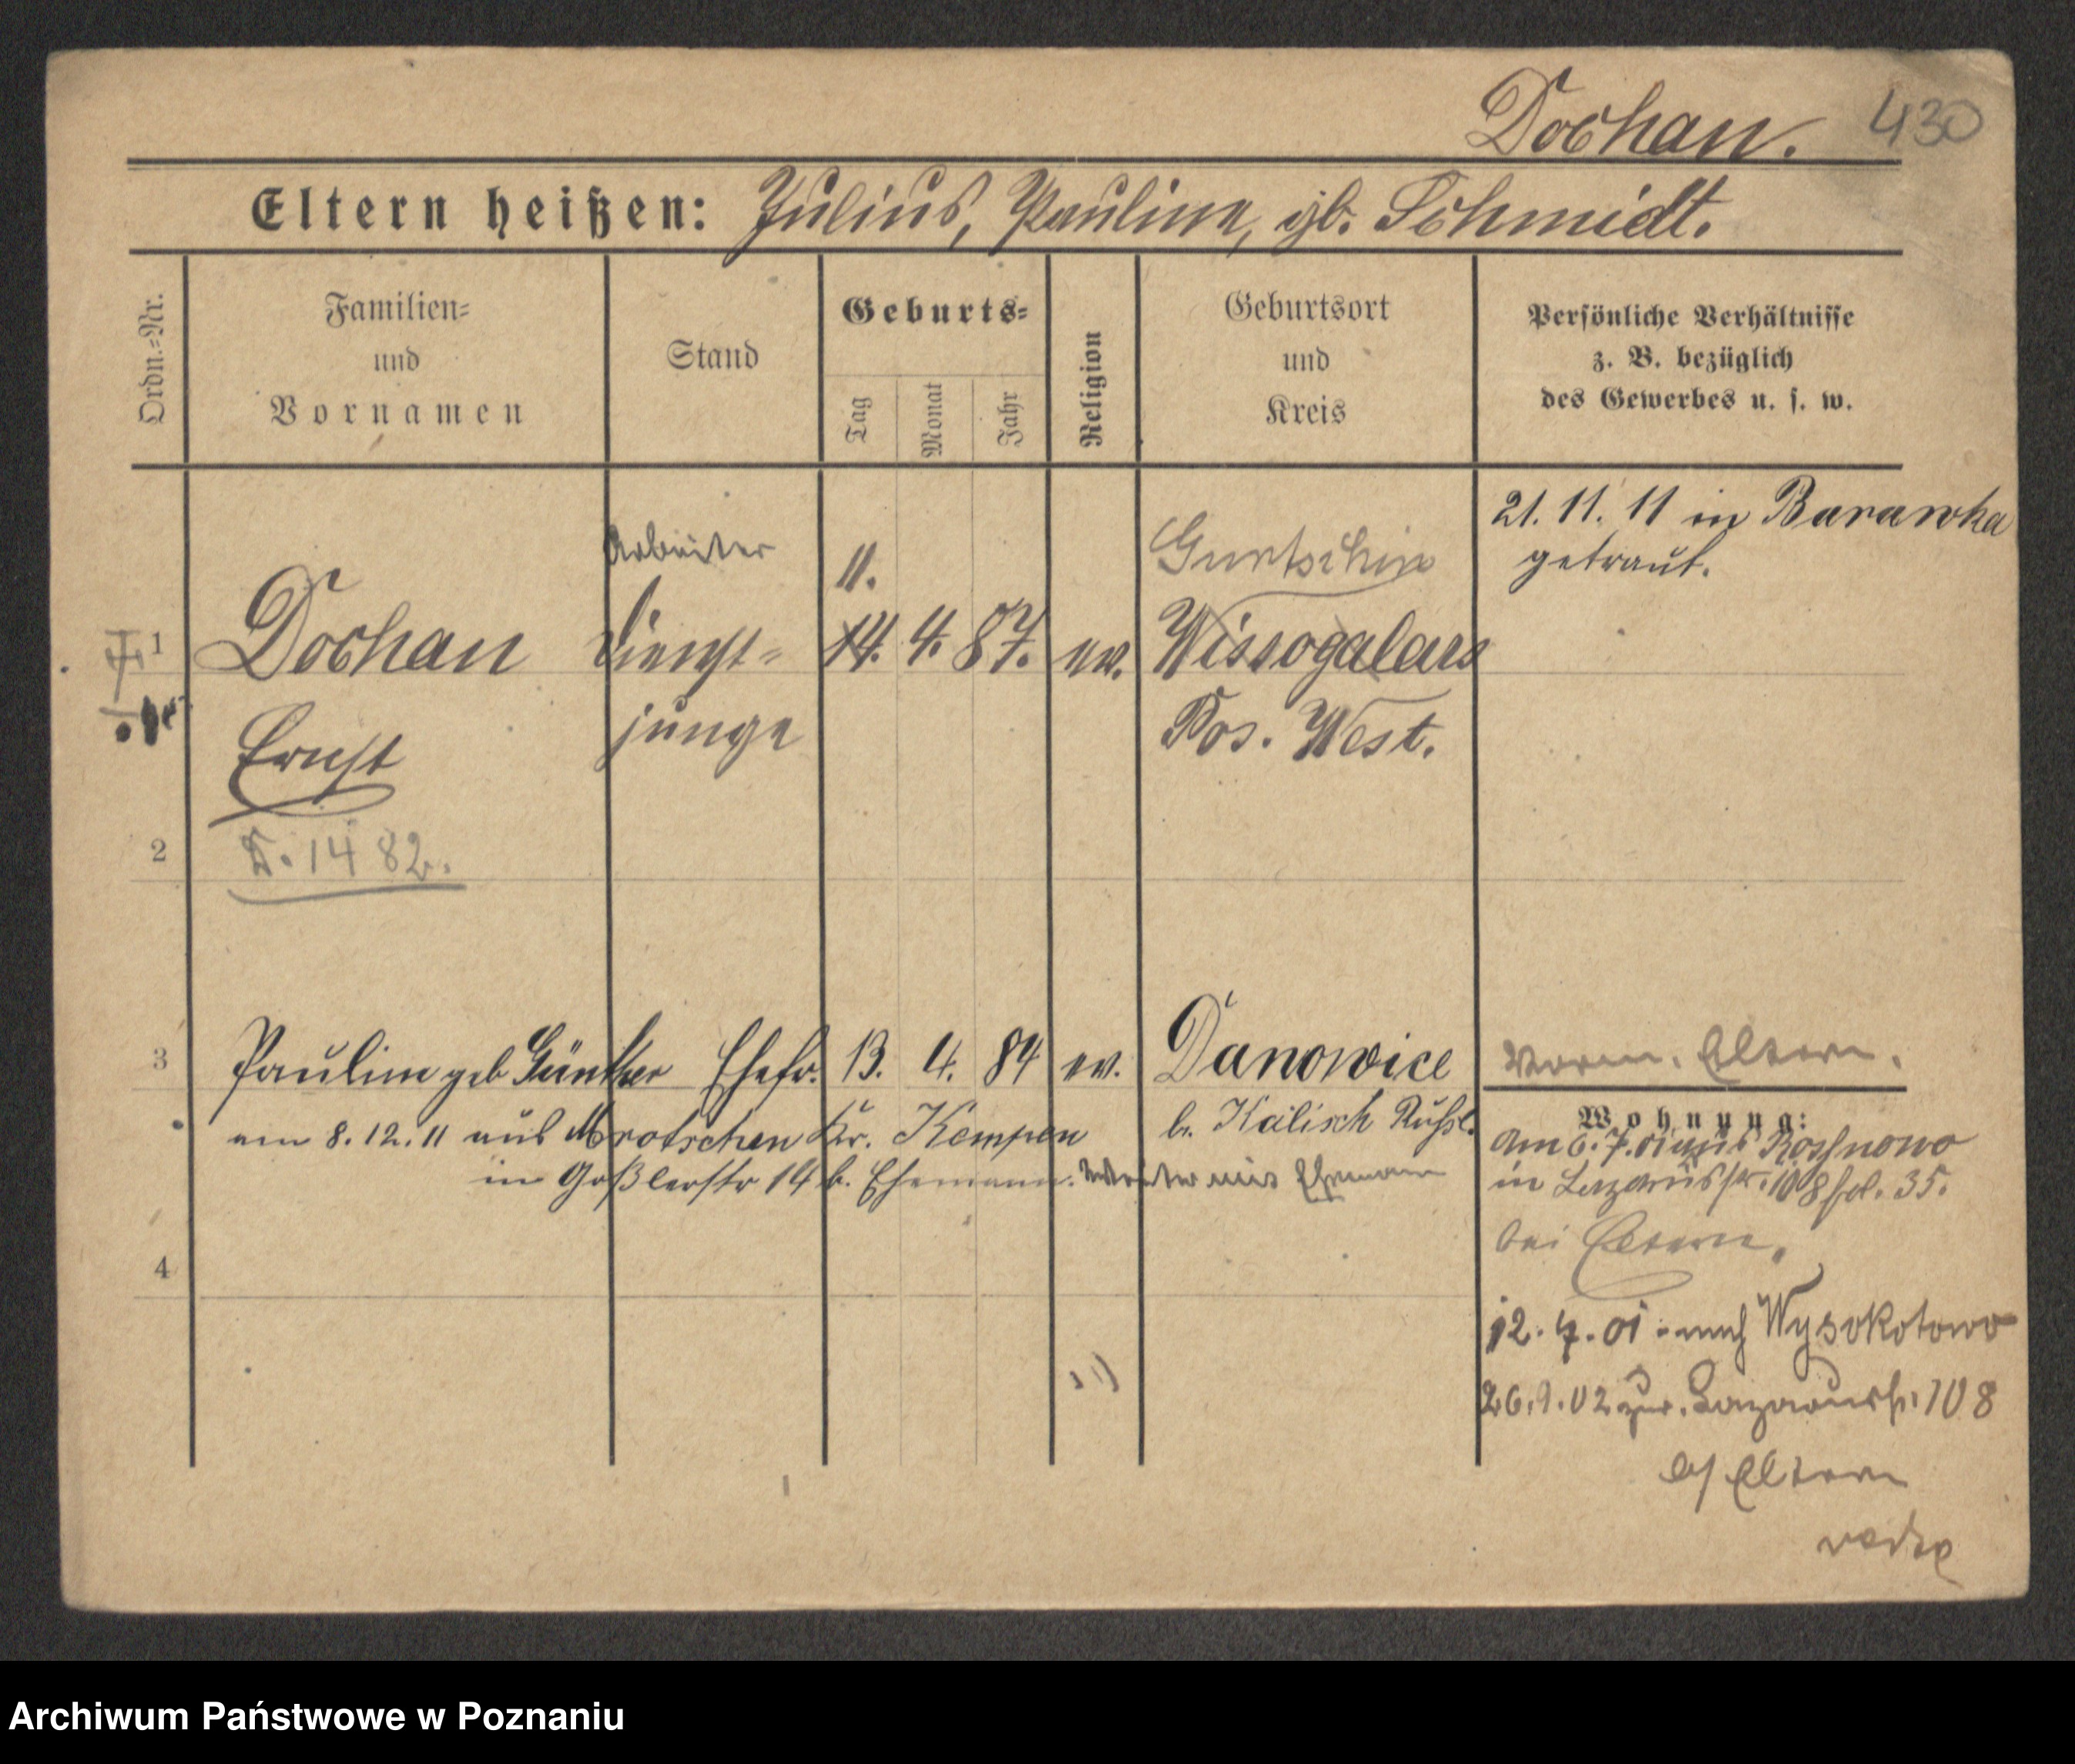 Dochan. 430
Eltern heißen: Julius, Pauline, gb. Schmidt.
Ordn.=Nr.
Familien=
und
Vornamen
Stand
Geburts=
Tag
Monat
Jahr
Religion
Geburtsort
und
Kreis
Persönliche Verhältnisse
z. B. bezüglich
des Gewerbes u. s. w.
21. 11. 11 in Barawka
getraut.
Arbeiter 11. Gurtschin
1 Dochan Dienst= 14. 4. 87. ev. Wissogalars
Ernst junge Pos. West.
2 D. 1482.
3 Pauline geb Günther Ehefr. 13. 4. 84 ev. Danowice
b. Kalisch Russl.
am 8.12.11 aus Mrotschen Kr. Kempen
in Goßlerstr 14 b. Ehemann. weiter mit Ehemann
4
Vorm. Eltern.
Wohnung:
Am 6.7.01 aus Rossnowo
in Lazarusstr. 108 fol. 35.
bei Eltern.
12.7.01 nach Wysokotowo
26.9.02 zur. Lazarusstr. 108
b/ Eltern
Archiwum Państwowe w Poznaniu